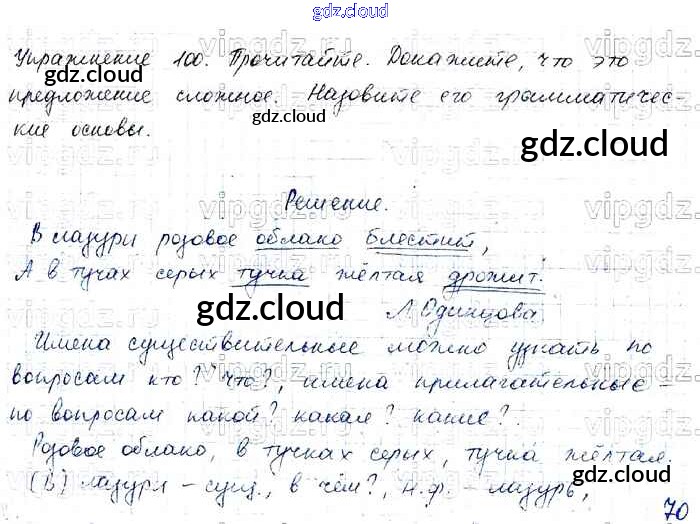 gdz.cloud
Упражнение 100. Прочитайте. Докажите, что это
gdz.cloud
предложение сложное. Назовите его грамматичес-
gdz.cloud
кие основы.
gdz.cloud
Решение.
В лазури розовое облако блестит,
А в тучах серых тучка жёлтая дрожит.
gdz.cloud
Л. Одинцова
Имена существительные можно узнать по
вопросам кто? что?, имена прилагательные -
gdz.cloud
по вопросам какой? какая? какие?
Розовое облако, в тучках серых, тучка жёлтая.
gdz.cloud
(В) лазури – сущ., в чём?, н.ф. – лазурь,
70